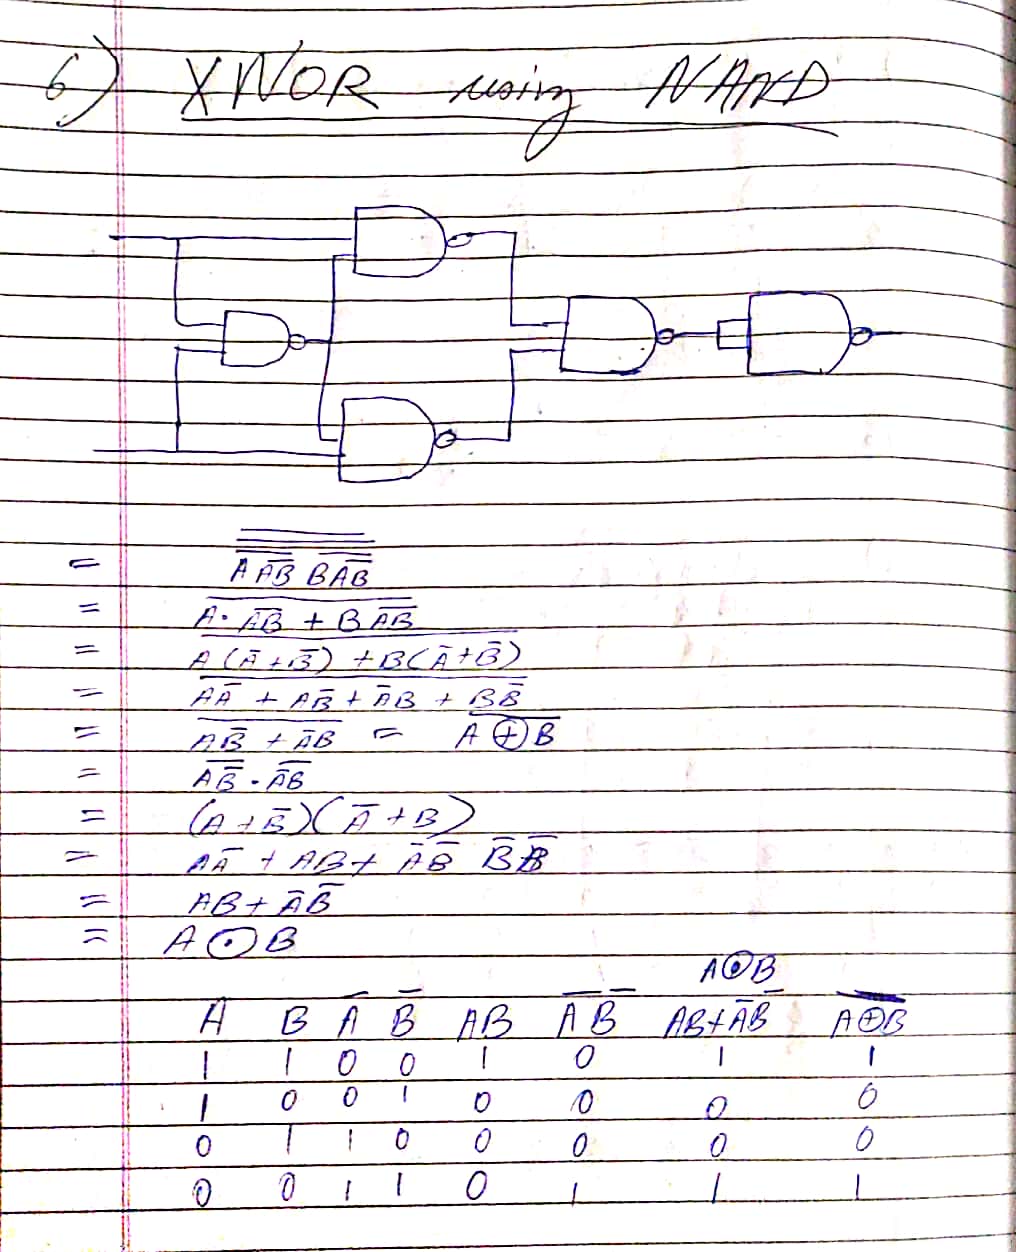 6) XNOR using NAND
= A̅ ̅A̅B̅ ̅B̅ ̅A̅B̅
= A·A̅B̅ + B A̅B̅
= A(A̅+B̅) + B(A̅+B̅)
= AA̅ + AB̅ + A̅B + BB̅
= AB̅ + A̅B = A⊕B
= AB̅ · A̅B
= (A+B̅)(A̅+B)
= AA̅ + AB + A̅B̅ B̅B
= AB + A̅B̅
= A⊙B
A⊙B
A B A̅ B̅ AB A̅B̅ AB+A̅B̅ A̅⊕̅B̅
1 1 0 0 1 0 1 1
1 0 0 1 0 0 0 0
0 1 1 0 0 0 0 0
0 0 1 1 0 1 1 1